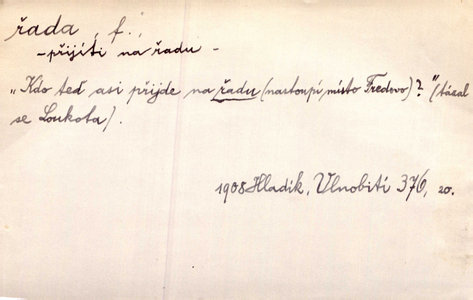 řada, f.,
- přijíti na řadu -
„Kdo teď asi přijde na řadu (nastoupí, místo Fredovo)?" (tázal
se Loukota).
1908 Hladík, Vlnobití 376, 20.